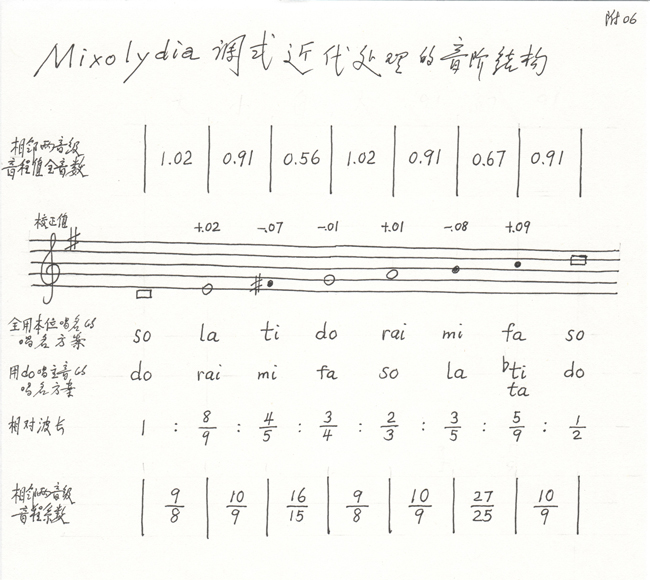 附06
Mixolydia 调式近代处理的音阶结构
相邻两音级
音程值全音数
1.02 0.91 0.56 1.02 0.91 0.67 0.91
校正值
+.02 -.07 -.01 +.01 -.08 +.09
全用本位唱名的
唱名方案
so la ti do rai mi fa so
用do唱主音的
唱名方案
do rai mi fa so la ♭ti do
ta
相对波长
1 : 8/9 : 4/5 : 3/4 : 2/3 : 3/5 : 5/9 : 1/2
相邻两音级
音程系数
9/8 10/9 16/15 9/8 10/9 27/25 10/9